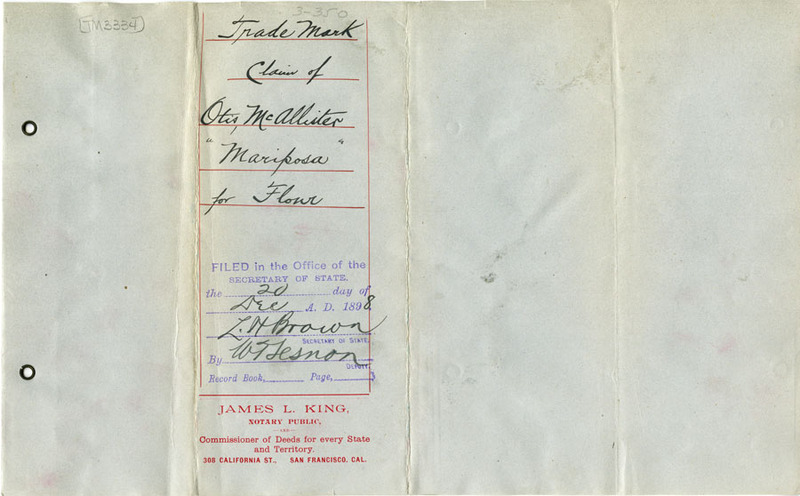 TM3334
3-350
Trade Mark
Claim of
Otis, McAllister
"Mariposa"
for Flour
FILED in the Office of the
SECRETARY OF STATE,
the 20 day of
Dec A. D. 1898.
L. H. Brown
SECRETARY OF STATE.
By
DEPUTY.
Record Book, Page,
JAMES L. KING,
NOTARY PUBLIC,
AND
Commissioner of Deeds for every State
and Territory.
308 CALIFORNIA ST., SAN FRANCISCO, CAL.